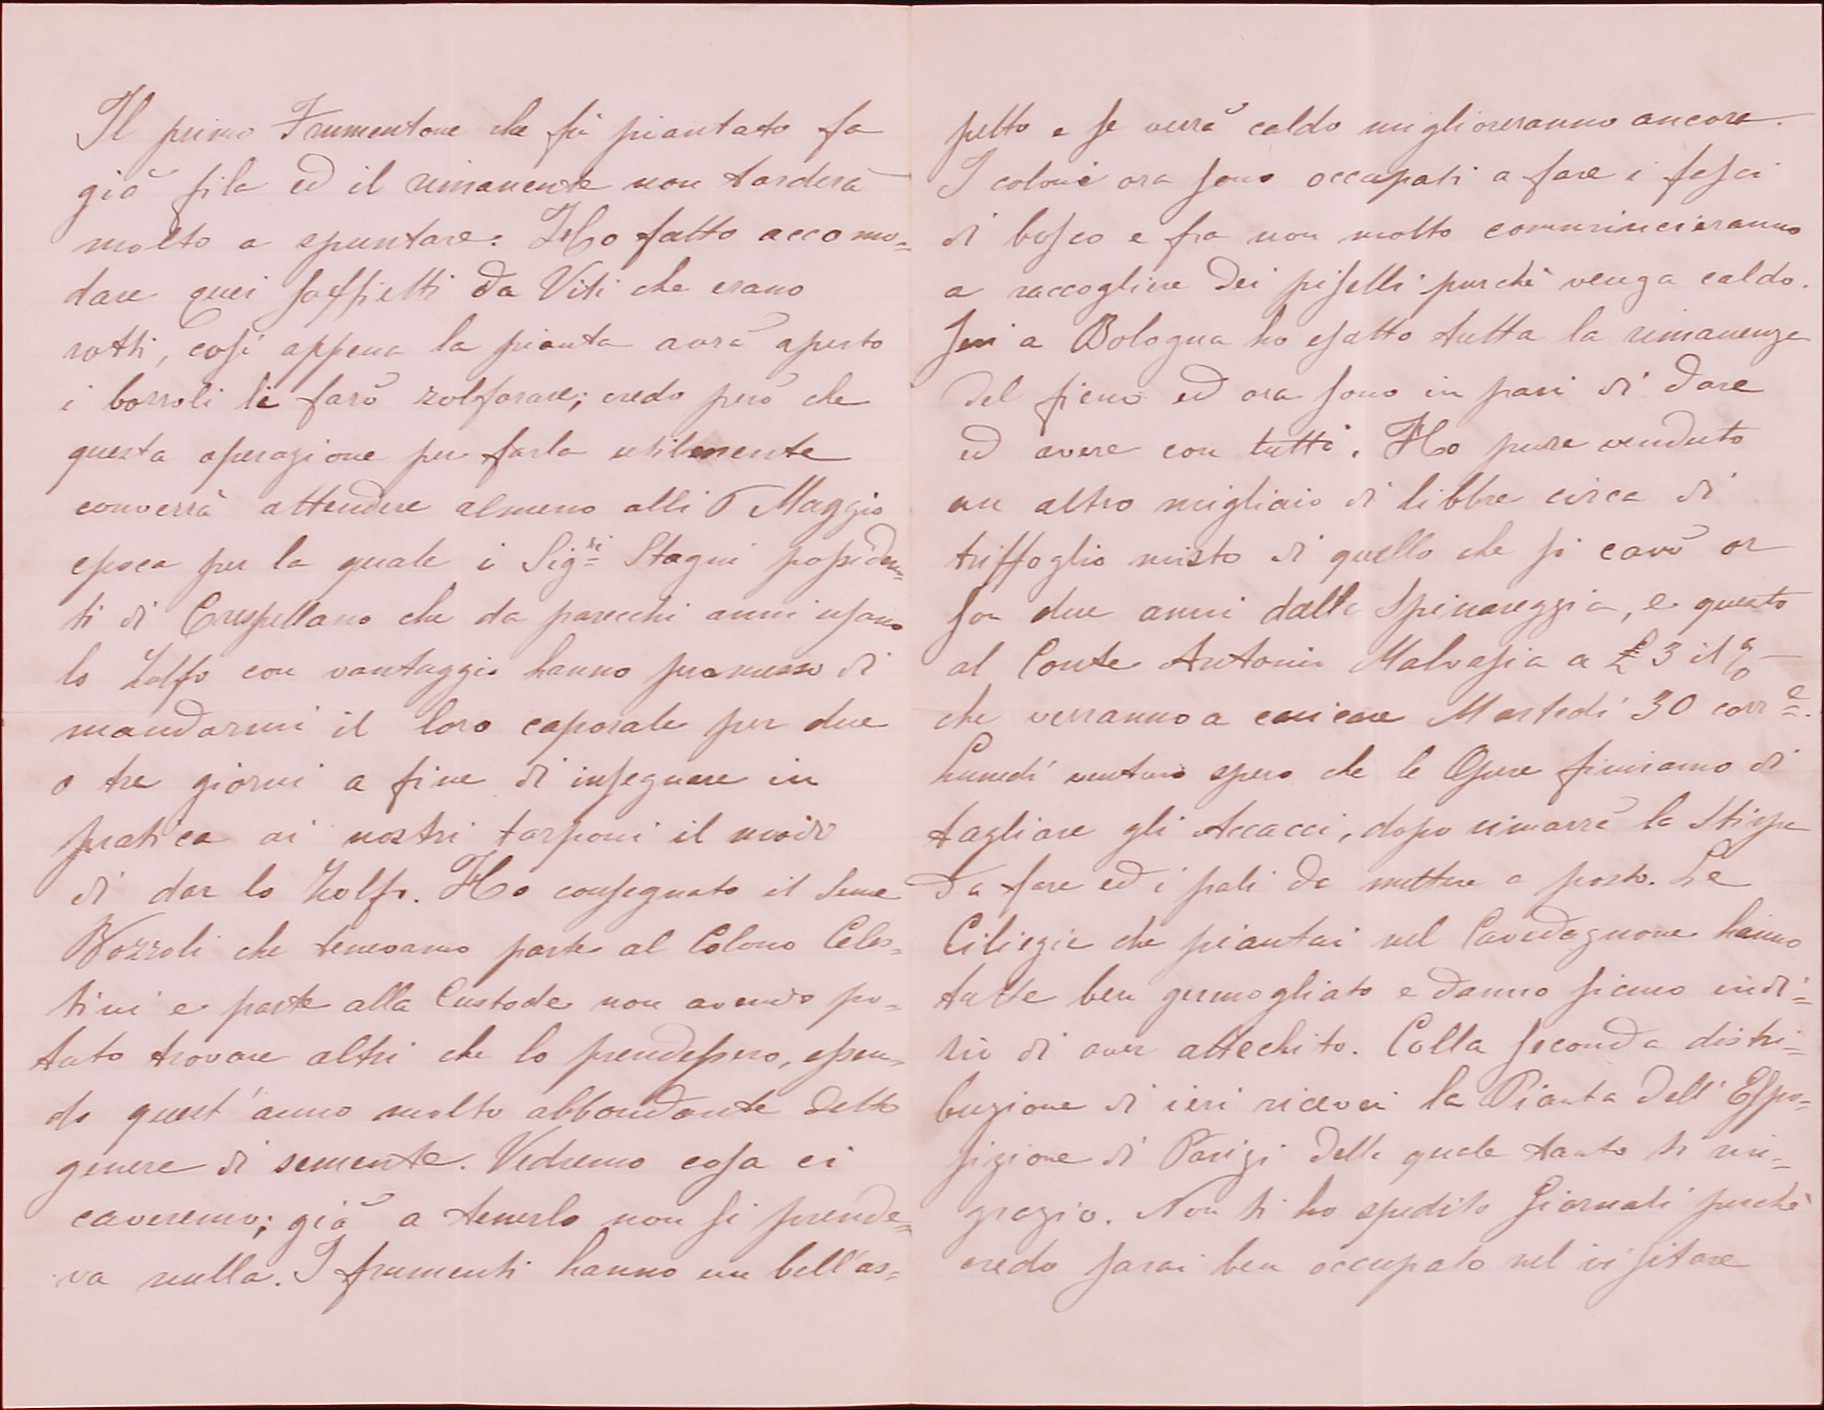 Il primo Frumentone che fù piantato fa
già fila ed il rimanente non tarderà
molto a spuntare. Ho fatto accomo=
dare quei soffietti da Viti che erano
rotti, così appena la pianta avrà aperto
i bozzoli li farò zolforare; credo però che
questa operazione per farla utilmente
converrà attendere almeno alli 6 Maggio
epoca per la quale i Sig.ri Stagni possiden=
ti di Crespellano che da parecchi anni usano
lo Zolfo con vantaggio hanno promesso di
mandarmi il loro caporale per due
o tre giorni a fine di insegnare in
pratica ai nostri tarponi il modo
di dar lo Zolfo. Ho consegnato il seme
Bozzoli che tenevamo parte al Colono Celes=
tini e parte alla Custode non avendo po=
tuto trovare altri che lo prendessero, essen=
do quest'anno molto abbondante detto
genere di semente. Vedremo cosa ci
caveremo; già a tenerlo non si prende=
va nulla. I frumenti hanno un bell'as=
petto e se verrà caldo miglioreranno ancora.
I coloni ora sono occupati a fare i fasci
di bosco e fra non molto commincieranno
a raccogliere dei piselli purchè venga caldo.
Jeri a Bologna ho esatto tutta la rimanenza
del fieno ed ora sono in pari di dare
ed avere con tutti. Ho pure venduto
un altro migliaio di libbre circa di
triffoglio misto di quello che si cavò or
son due anni dalla Spinareggia, e questo
al Conte Antonio Malvasia a £ 3 il %
che verranno a caricare Martedì 30 corr.e
Lunedì venturo spero che le Opere finiranno di
tagliare gli Accacci, dopo rimarrà la Stirpe
da fare ed i pali da mettere a posto. Le
Ciliegie che piantai nel Cavedagnone hanno
tutte ben germogliato e danno sicuro indi=
zio di aver attechito. Colla seconda distri=
buzione di ieri ricevei la Pianta dell'Espo=
sizione di Parigi della quale tanto ti rin=
grazio. Non ti ho spedito Giornali perchè
credo sarai ben occupato nel visitare